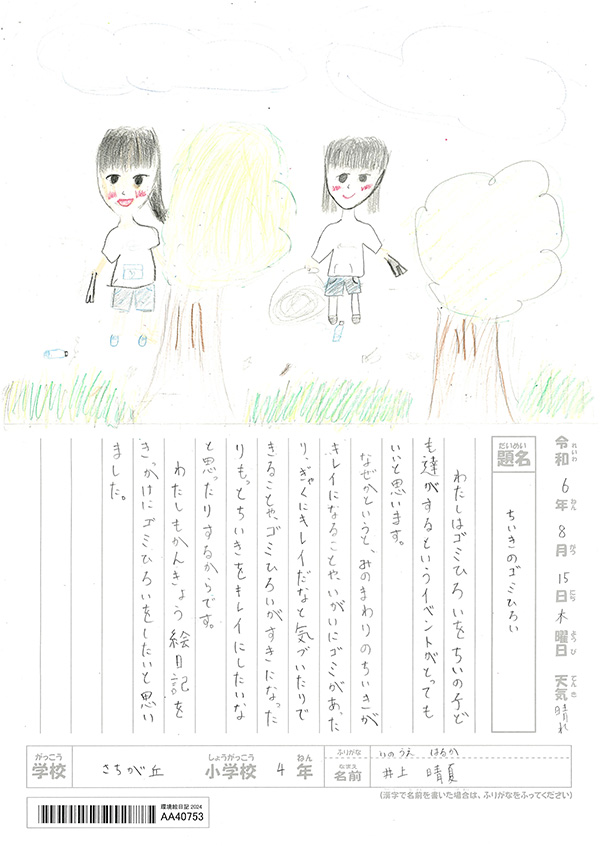 令和 れいわ 6年 ねん 8月 がつ 15日 にち 木曜日 ようび 天気 てんき 晴れ
題名 だいめい ちいきのゴミひろい
わたしはゴミひろいをちいの子ど
も達がするというイベントがとっても
いいと思います。
なぜかというと、みのまわりのちいきが
キレイになることや、いがいにゴミがあった
り、ぎゃくにキレイだなと気づいたりで
きることや、ゴミひろいがすきになった
りもっとちいきをキレイにしたいな
と思ったりするからです。
わたしもかんきょう絵日記を
きっかけにゴミひろいをしたいと思い
ました。
学校 がっこう さちが丘 小学校 しょうがっこう 4年 ねん
ふりがな いのうえ はるか
名前 なまえ 井上 晴夏
(漢字で名前を書いた場合は、ふりがなをふってください)
環境絵日記 2024
AA40753